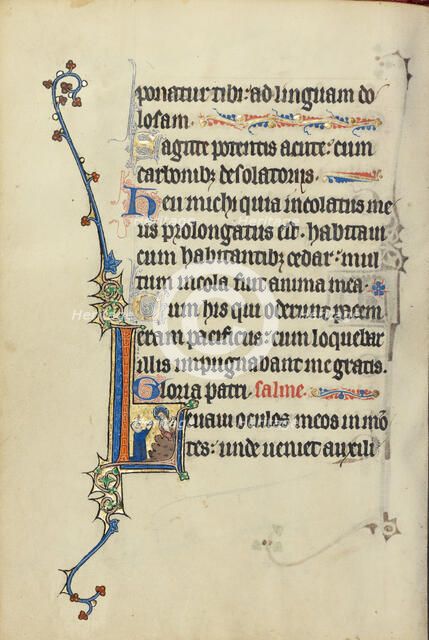 ponatur tibi: ad linguam do
losam.
Sagitte potentis acute: cum
carbonibȝ desolatoriis.
Heu michi quia incolatus me
us prolongatus est. habitaui
cum habitantibȝ cedar: mul
tum incola fuit anima mea.
Cum his qui oderunt pacem
eram pacificus: cum loquebar
illis impugnabant me gratis.
Gloria patri. salme.
Leuaui oculos meos in mō
tes: unde ueniet auxili
Heritage
Heritage
Heritage
Heritage